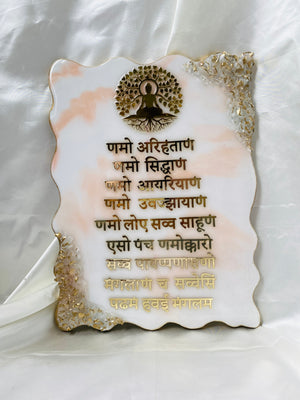 णमो अरिहंताणं
णमो सिद्धाणं
णमो आयरियाणं
णमो उवज्झायाणं
णमो लोए सव्व साहूणं
एसो पंच णमोक्कारो
सव्व पावप्पणासणो
मंगलाणं च सव्वेसिं
पढमं हवई मंगलम